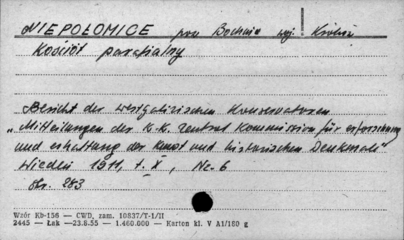 NIEPOŁOMICE pow Bochnia woj. Kraków
Kościół parafialny
Bericht der westgalizischen Konservatoren
„Mitteilungen der K.K. Zentral Kommission für erforschung
und erhaltung der Kunst und historischen Denkmale"
Wiedeń 1911, t. X, Nr. 6
str. 283
Wzór Kb-156 — CWD, zam. 10837/T-1/II
2445 — Łak — 23.8.55 — 1.460.000 — Karton kl. V A1/180 g